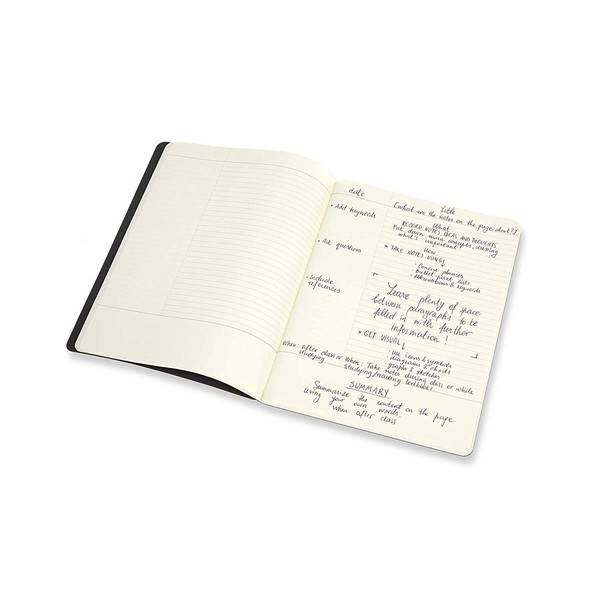 date
title
[what are the notes on the page about?]
• Add keywords
What
RECORD NOTES, IDEAS AND THOUGHTS
Put down main concepts, stressing
what's important
How
• Ask questions
• TAKE NOTES USING
- Concise phrases
- bullet point lists
- Abbreviations & keywords
• Include
references
Leave plenty of space
between paragraphs to be
filled in with further
information!
• GET VISUAL
- Use icons & symbols
- diagrams & charts
- graphs & sketches
When: after class or
studying
When: Take notes during class or while
studying/reading textbooks
SUMMARY
Summarize the content on the page
using your own words
when after class